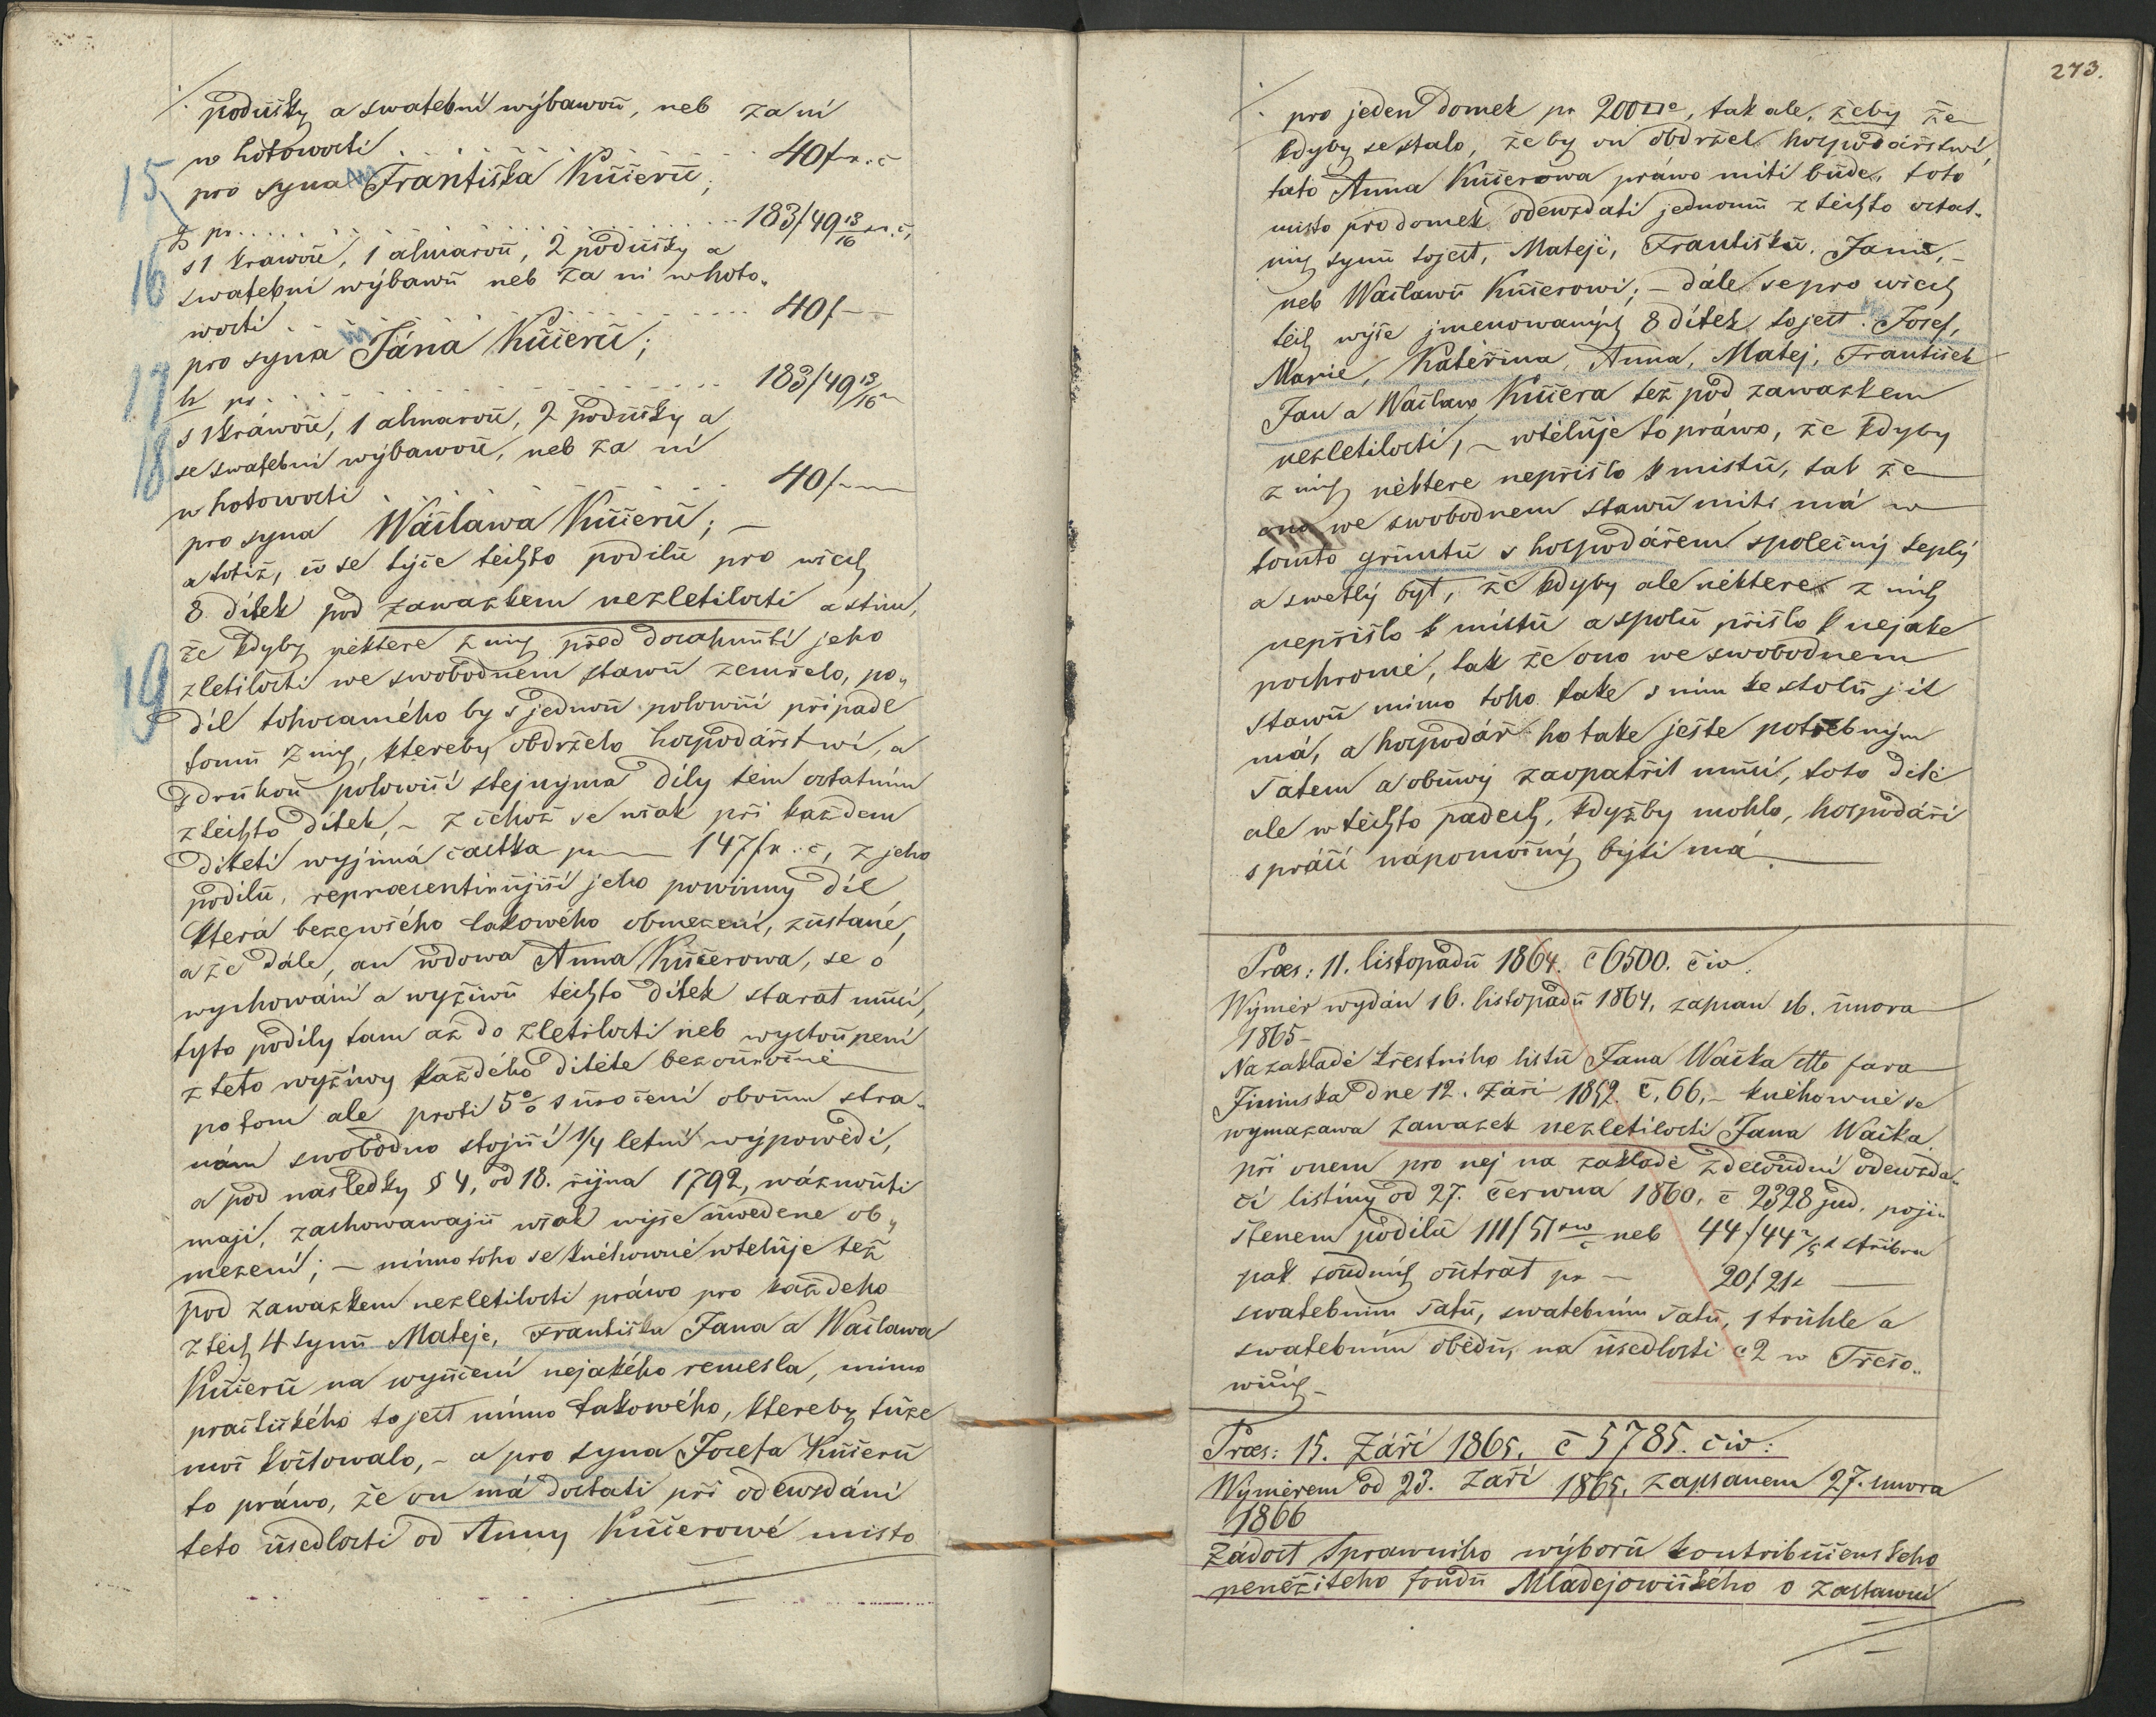 podušky a swatební wýbawou, neb za ni
w hotowosti . . . . . . . . . . . . 40 f r. č
15
pro syna Františka Kučeru;
g, pr. . . . . . . . . . . . . . 183/49 13/16 r. č,
16
s 1 krawou, 1 almarou, 2 podušky a
swatební wýbawu neb za ni w hoto„
wosti . . . . . . . . . . . . 40 f
pro syna Jána Kučeru;
17
h, pr. . . . . . . . . . . . . 183/49 13/16
18
s 1 kráwou, 1 almarou, 2 podušky a
se swatební wýbawou, neb za ni
w hotowosti . . . . . . . . . 40 f
pro syna Wáclawa Kučeru; —
a totiž, co se týče těchto podílu pro wšech
8 dítek pod zawazkem nezletilosti a stím,
že kdyby některe z nich před dosahnutí jeho
19
zletilosti we swobodnem stawu zemřelo, po„
díl tohosamého by s jednou polowicí připadl
tomu z nich, ktereby obdrželo hospodářstwí, a
s druhou polowicí stejnýma díly těm ostatním
z těchto dítek, – z čehož se wšak při každem
díteti wyjímá častka pr — 147 f r. č, z jeho
podílu, repraesentirujicí jeho powinny díl
která beze wšého takowého obmezení, zustané,
a že dále, an wdowa Anna Kučerowa, se o
wychowání a wyžiwu těchto dítek starat musí,
tyto podíly tam až do zletilosti neb wystoupení
z této wyžiwy každého dítěte bezouročně
potom ale proti 5% zúročení oboum stra„
nám swobodno stojící 1/4 letní wýpowědi,
a pod následky § 4, od 18. října 1792, wáznouti
mají, zachowawajíc wšak wýše uwedene ob„
mezení; – mimo toho se knéhowně wtěluje též
pod zawazkem nezletilosti práwo pro každeho
z těch 4 synu Mateje, Františka Jana a Waclawa
Kučeru na wyučení nejakého remesla, mimo
to jest mimo takowého, ktereby tuze
moc koštowalo, – a pro syna Josefa Kučeru
to práwo, že on má dostati při odewzdání
teto usedlosti od Anny Kučerowé misto
273.
pro jeden domek pr 200, tak ale, žeby že
kdyby se stalo, že by on obdržel hospodářstwí,
tato Anna Kučerowa práwo míti bude, toto
misto pro domek odewzdati jednomu z těchto ostat„
nich synu to jest, Mateji, Františku, Janu, –
neb Waclawu Kučerowi; – dále se pro wšech
těch wýše jmenowaných 8 dítek, to jest: Josef,
Marie, Kateřina, Anna, Matej, František
Jan a Waclaw Kučera též pod zawazkem
nezletilosti, – wtěluje to práwo, že kdyby
z nich některe nepřišlo k mistu, tak že
ono we swobodnem stawu miti má w
tomto gruntu s hospodářem společný teplý
a swetlý byt, že kdyby ale některe z nich
nepřišlo k místu a spolu přišlo k nejake
pochromé, tak že ono we swobodnem
stawu mimo toho take s nim ke stolu jít
má, a hospodář ho take ještě potřebným
šatem a obuwý zaopatřit musí, toto dítě
ale w těchto padech, kdyžby mohlo, hospodáři
s prácí nápomocný býti má.
Præs: 11. listopadu 1864. č 6500. čiw.
Wýměr wydán 16. listopadu 1864, zapsan 16. unora
1865 –
Na zakladě křestního listu Jana Wacka dto fara
Jininska dne 12. Září 1852. č. 66, – knéhowně se
wymazawa zawazek nezletilosti Jana Wacka
při onem pro nej na zakladě zdesoudní odewzda„
cí listiny od 27. Června 1860. č 2328 jud. poji„
štenem podílu 111/51 neb 44/44 stříbra
pak soudních outrat pr — 20/21
swatebním šatu, swatebním šatu, 1 truhle a
swatebním obědu, na usedlosti č 2 w Třešo„
wicích –
Præs: 15. Září 1865. č 5785. čiw:
Wyměrem od 23. Září 1865, zapsanem 27. unora
1866
Žádost sprawního wýboru kontribučenskeho
peněžiteho fondu Mladějowického o zastawní